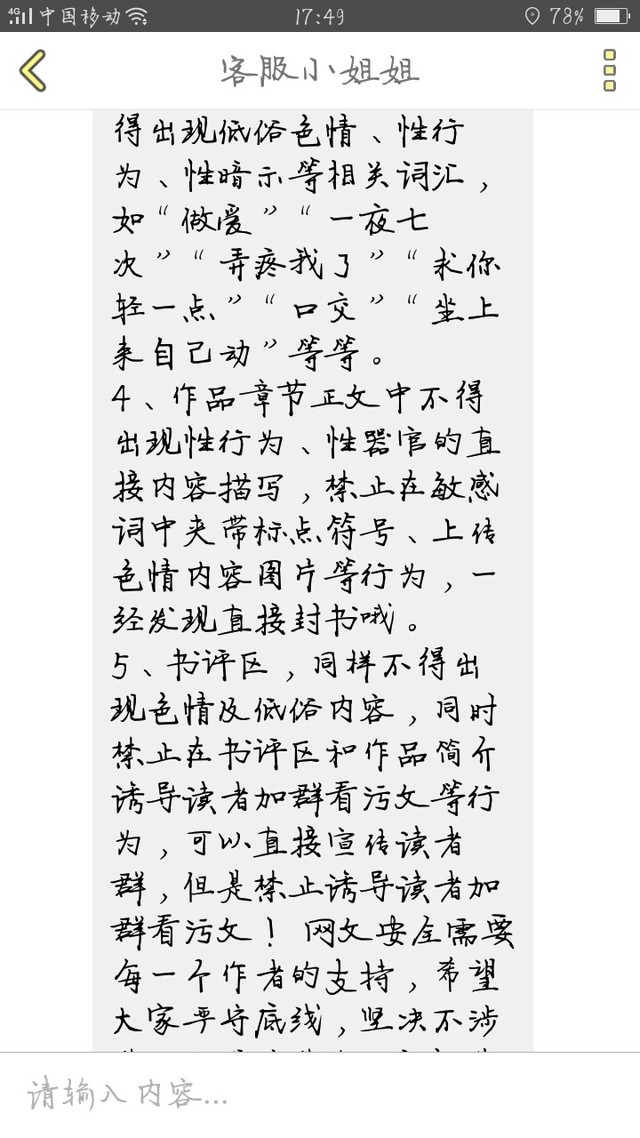 4G 中国移动 17:49 78%
客服小姐姐
得出现低俗色情、性行
为、性暗示等相关词汇，
如“做爱”“一夜七
次”“弄疼我了”“求你
轻一点”“口交”“坐上
来自己动”等等。
4、作品章节正文中不得
出现性行为、性器官的直
接内容描写，禁止在敏感
词中夹带标点符号、上传
色情内容图片等行为，一
经发现直接封书哦。
5、书评区，同样不得出
现色情及低俗内容，同时
禁止在书评区和作品简介
诱导读者加群看污文等行
为，可以直接宣传读者
群，但是禁止诱导读者加
群看污文！网文安全需要
每一个作者的支持，希望
大家严守底线，坚决不涉
请输入内容...